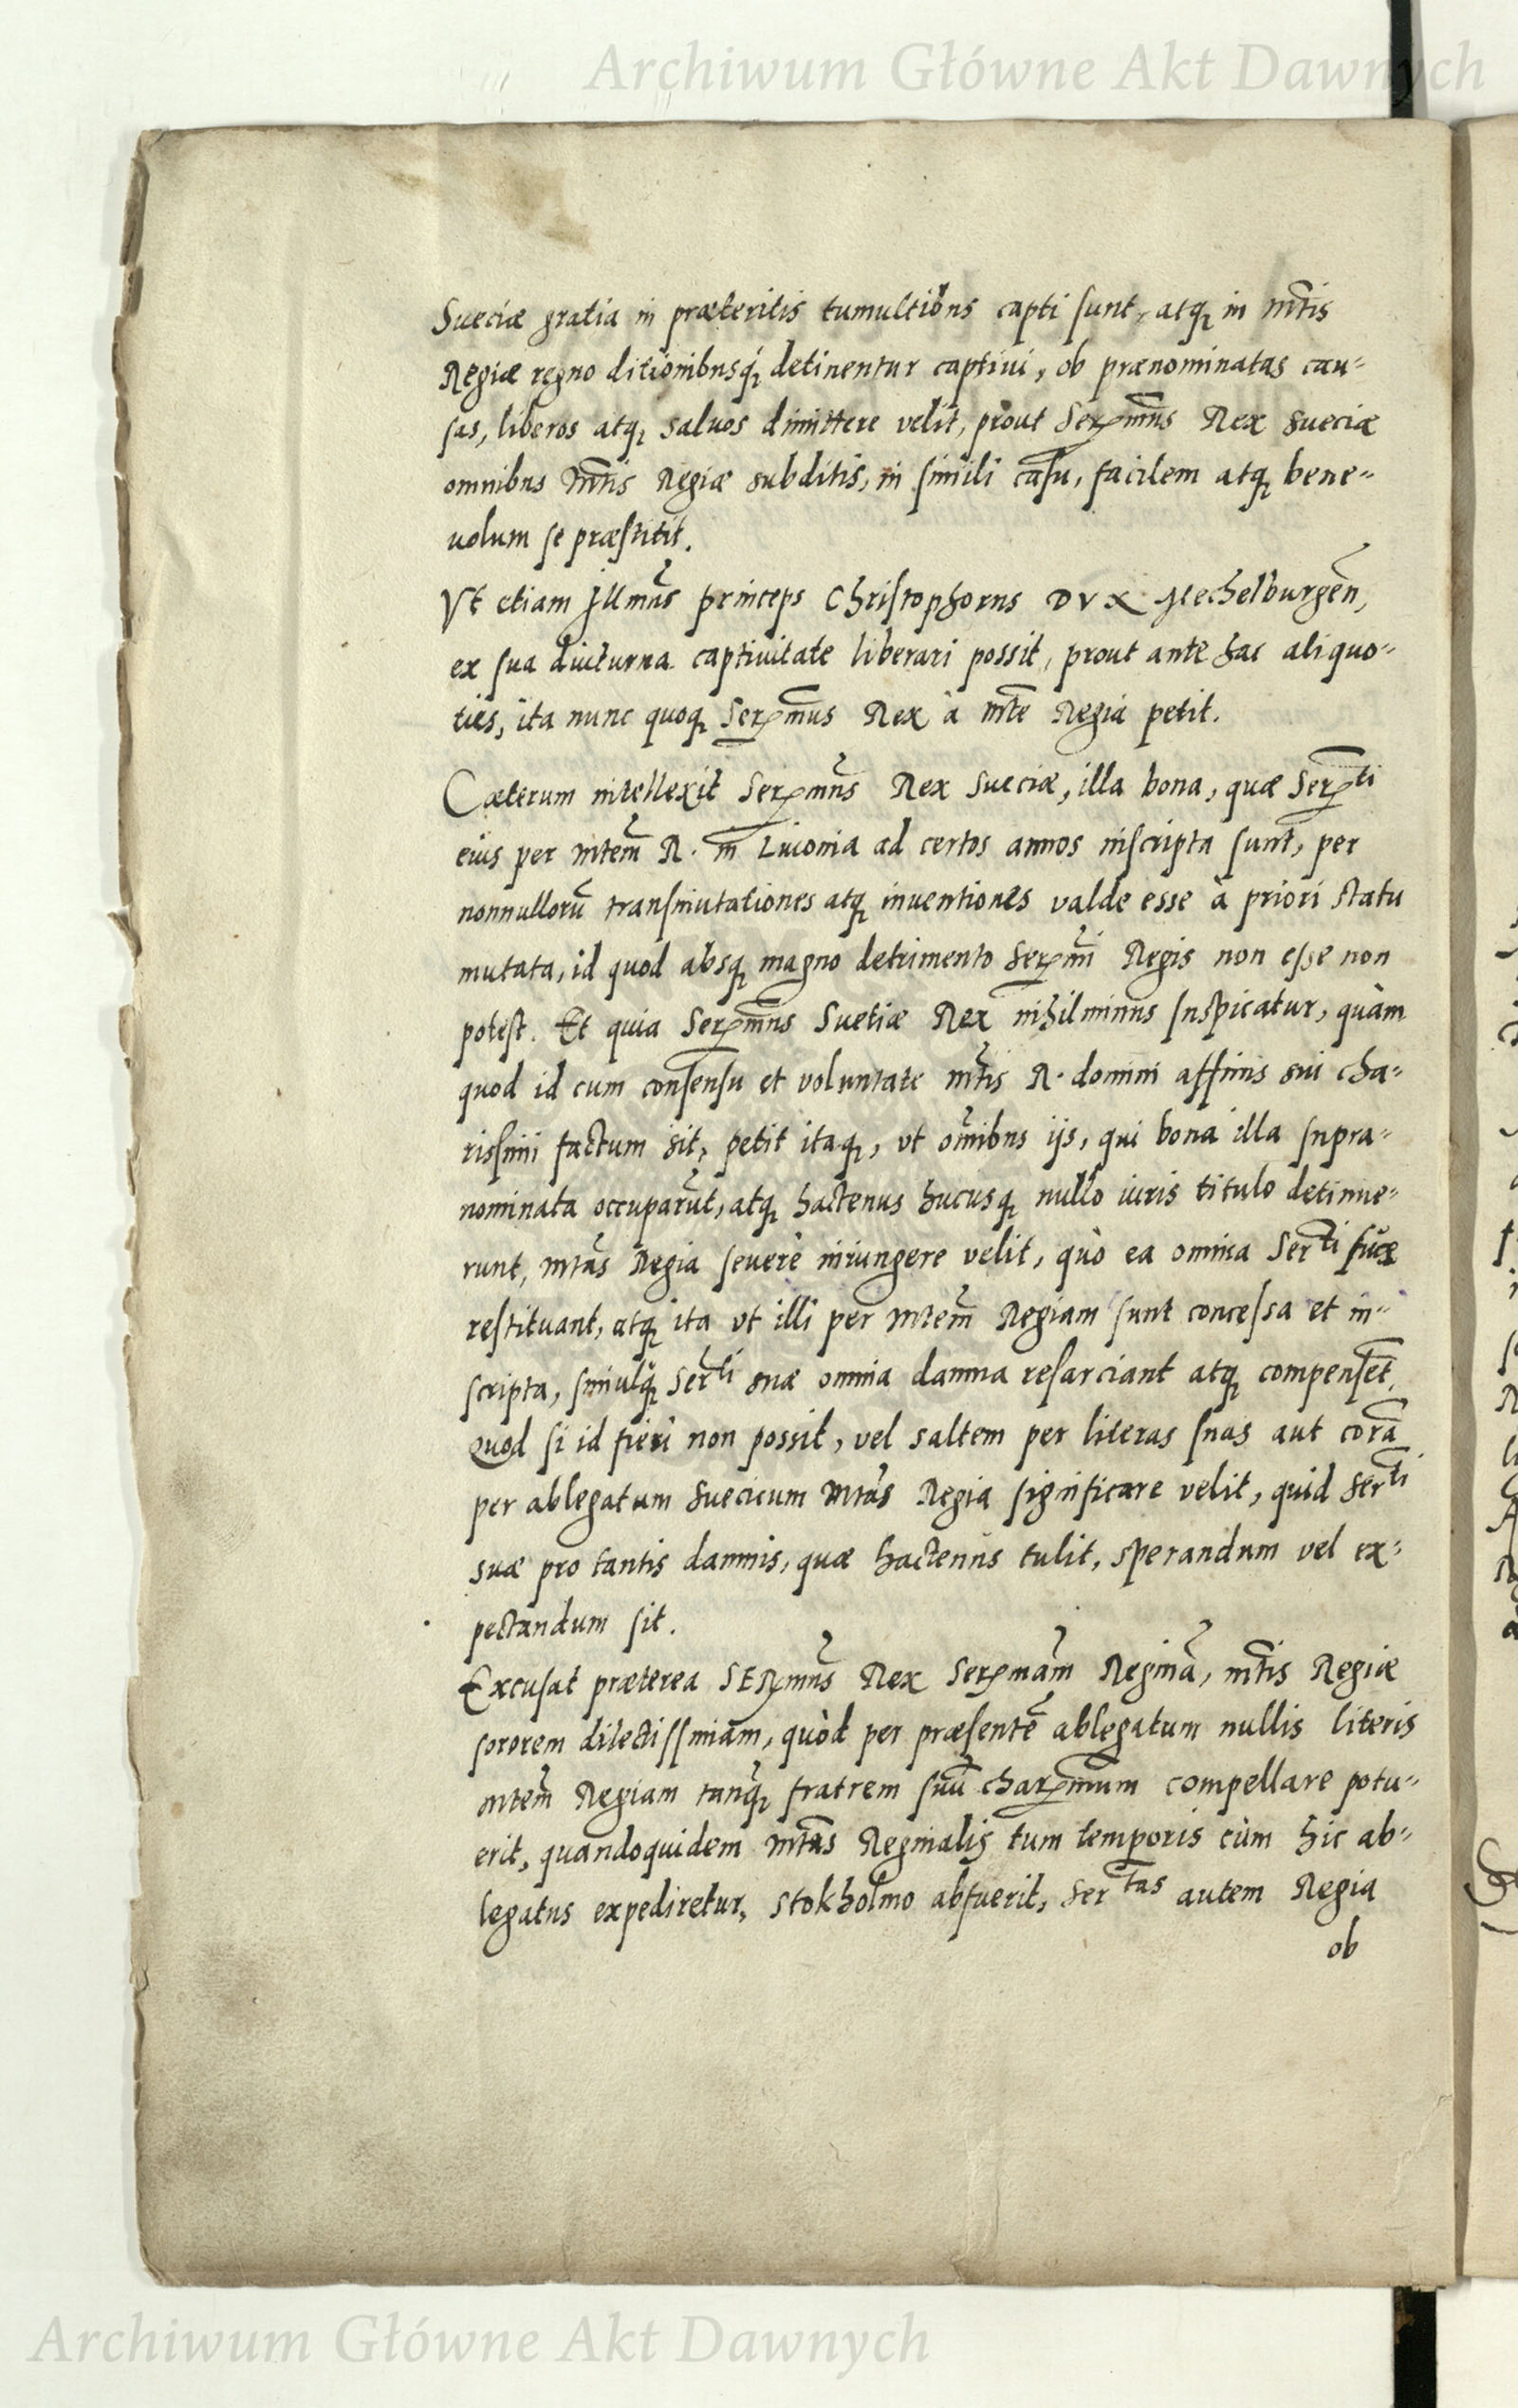 Archiwum Główne Akt Dawnych
Sueciæ gratia in præteritis tumultibus capti sunt, atq; in Mtis
Regiæ regno ditionibusq; detinentur captiui, ob prænominatas cau-
sas, liberos atq; saluos dimittere velit, prout Serenmus Rex Sueciæ
omnibus Mtis Regiæ subditis, in simili casu, facilem atq; bene-
uolum se præstitit.
Vt etiam Illmus princeps Christophorus DVX Mechelburgen,
ex sua diuturna captiuitate liberari possit, prout ante hac aliquo-
ties, ita nunc quoq; Serenmus Rex à Mte Regia petit.
Cæterum intellexit Serenmus Rex Sueciæ, illa bona, quæ Serenti
eius per Mtem R. in Liuonia ad certos annos inscripta sunt, per
nonnullorū transmutationes atq; inuentiones valde esse à priori statu
mutata, id quod absq; magno detrimento Serenmi Regis non esse non
potest. Et quia Serenmus Suetiæ Rex nihilminus suspicatur, quàm
quod id cum consensu et voluntate Mtis R. domini affinis sui cha-
rissimi factum sit, petit itaq;, vt omībus ijs, qui bona illa supra-
nominata occuparūt, atq; hactenus hucusq; nullo iuris titulo detinue-
runt, Mtas Regia seuerè iniungere velit, quò ea omnia Serti suæ
restituant, atq; ita vt illi per Mtem Regiam sunt concessa et in-
scripta, simulq; Serti suæ omnia damna resarciant atq; compensēt,
Quod si id fieri non possit, vel saltem per literas suas aut corā
per ablegatum Suecicum Mtas Regia significare velit, quid Serti
suæ pro tantis damnis, quæ hactenus tulit, sperandum vel ex-
pectandum sit.
Excusat præterea SERenmus Rex Serenmam Reginā, Mtis Regiæ
sororem dilectissimam, quòd per præsentē ablegatum nullis literis
Mtem Regiam tanq; fratrem suū charenmum compellare potu-
erit, quandoquidem Mtas Reginalis tum temporis cùm hic ab-
legatus expediretur, Stokholmo abfuerit, Sertas autem Regia
ob
Archiwum Główne Akt Dawnych